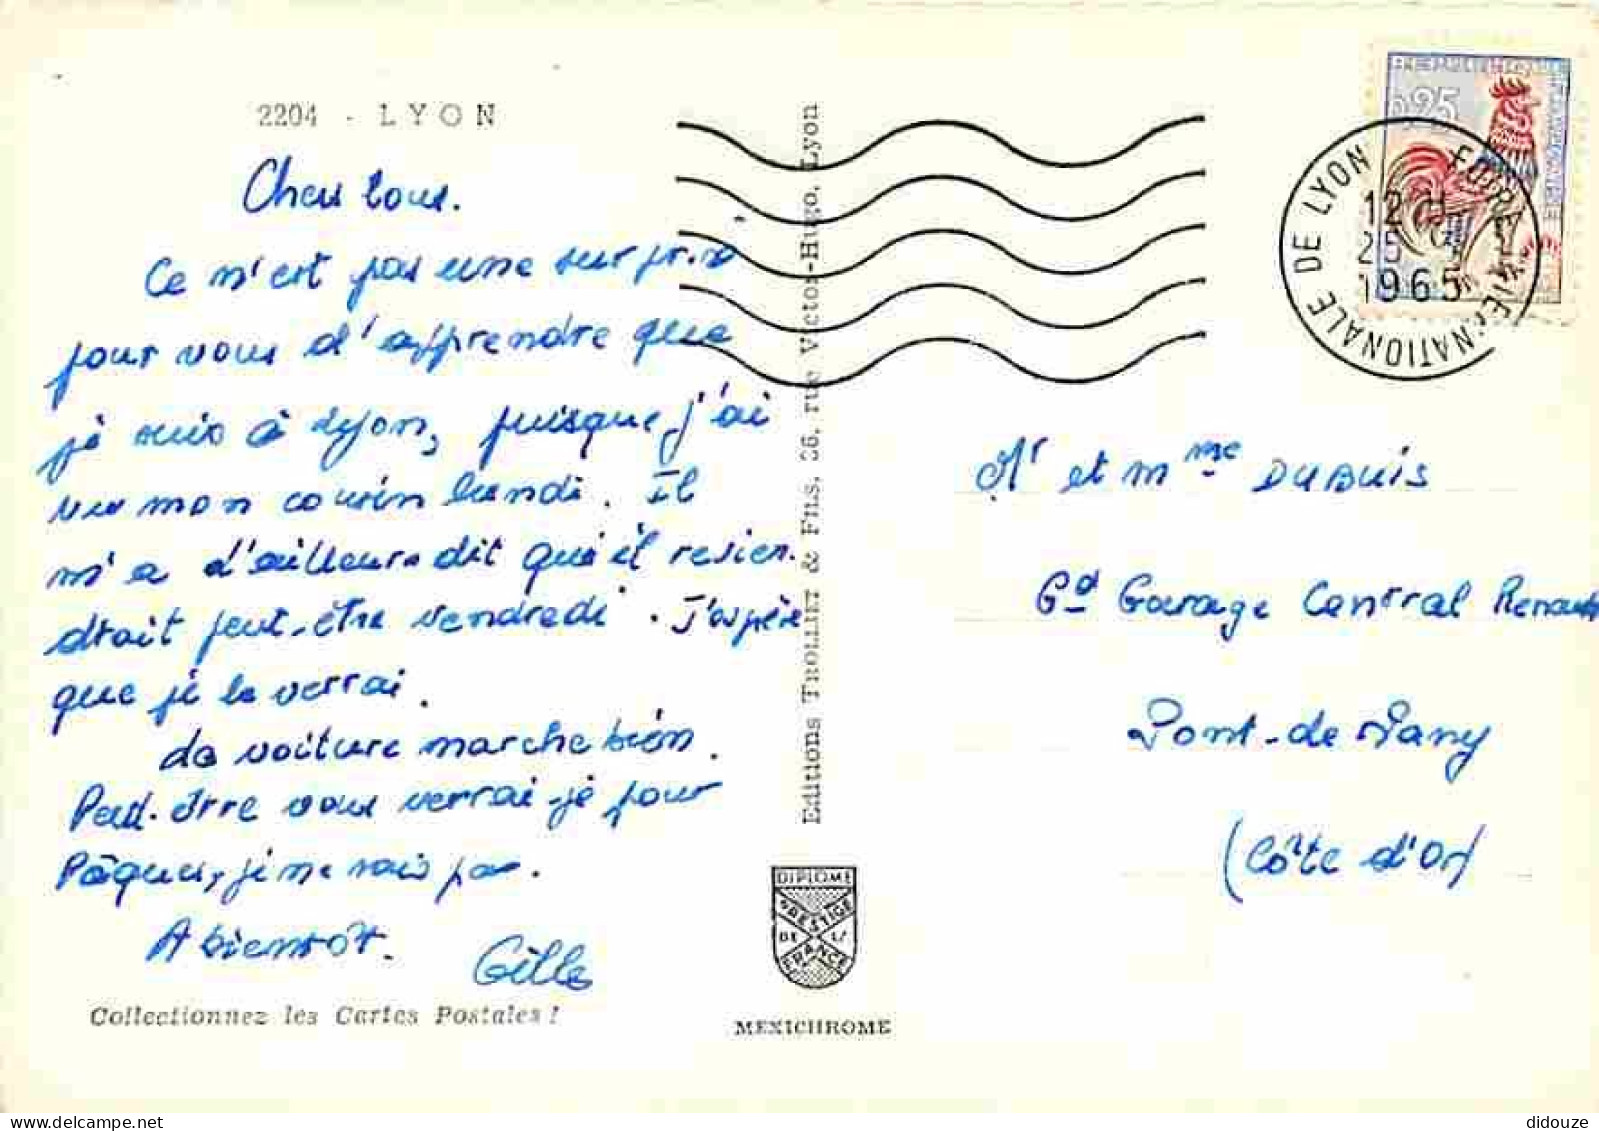 2204 - LYON
Chers tous.
Ce n'est pas une surprise
pour vous d'apprendre que
je suis à Lyon, puisque j'ai
vu mon cousin lundi. Il
m'a d'ailleurs dit qu'il revien-
drait peut-être vendredi. J'espère
que je le verrai.
La voiture marche bien.
Peut-être vous verrai-je pour
Pâques, je ne sais pas.
A bientôt.
Gille
Collectionnez les Cartes Postales !
Editions TROLLIET & FILS, 36, rue Victor-Hugo, Lyon
DIPLOME
PRESTIGE
DE LA
FRANCE
MEXICHROME
0,25
FOIRE INTERNATIONALE DE LYON
12 H
25
1965
Mr et Mme DUBUIS
Gd Garage Central Renault
Pont-de-Pany
(Côte d'Or)
didouze